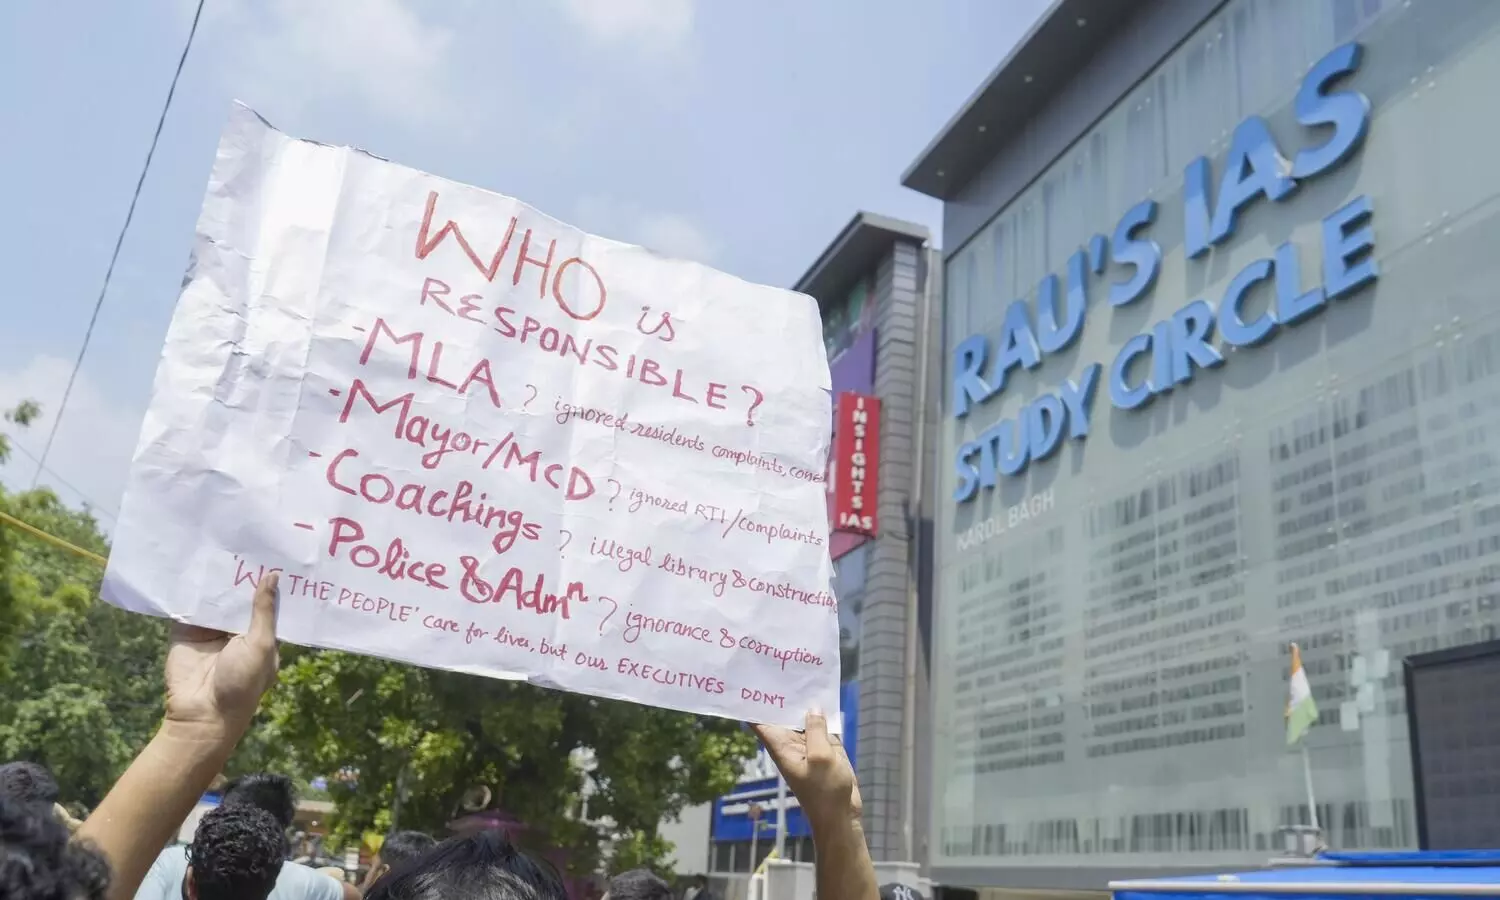 WHO is
RESPONSIBLE?
-MLA ? ignored residents complaints,
-Mayor/MCD ? ignored RTI/complaints
-Coachings ? illegal library & construction
-Police & Admn ? ignorance & corruption
'WE THE PEOPLE' care for lives, but our EXECUTIVES DON'T
INSIGHTS
IAS
RAU'S IAS
STUDY CIRCLE
KAROL BAGH